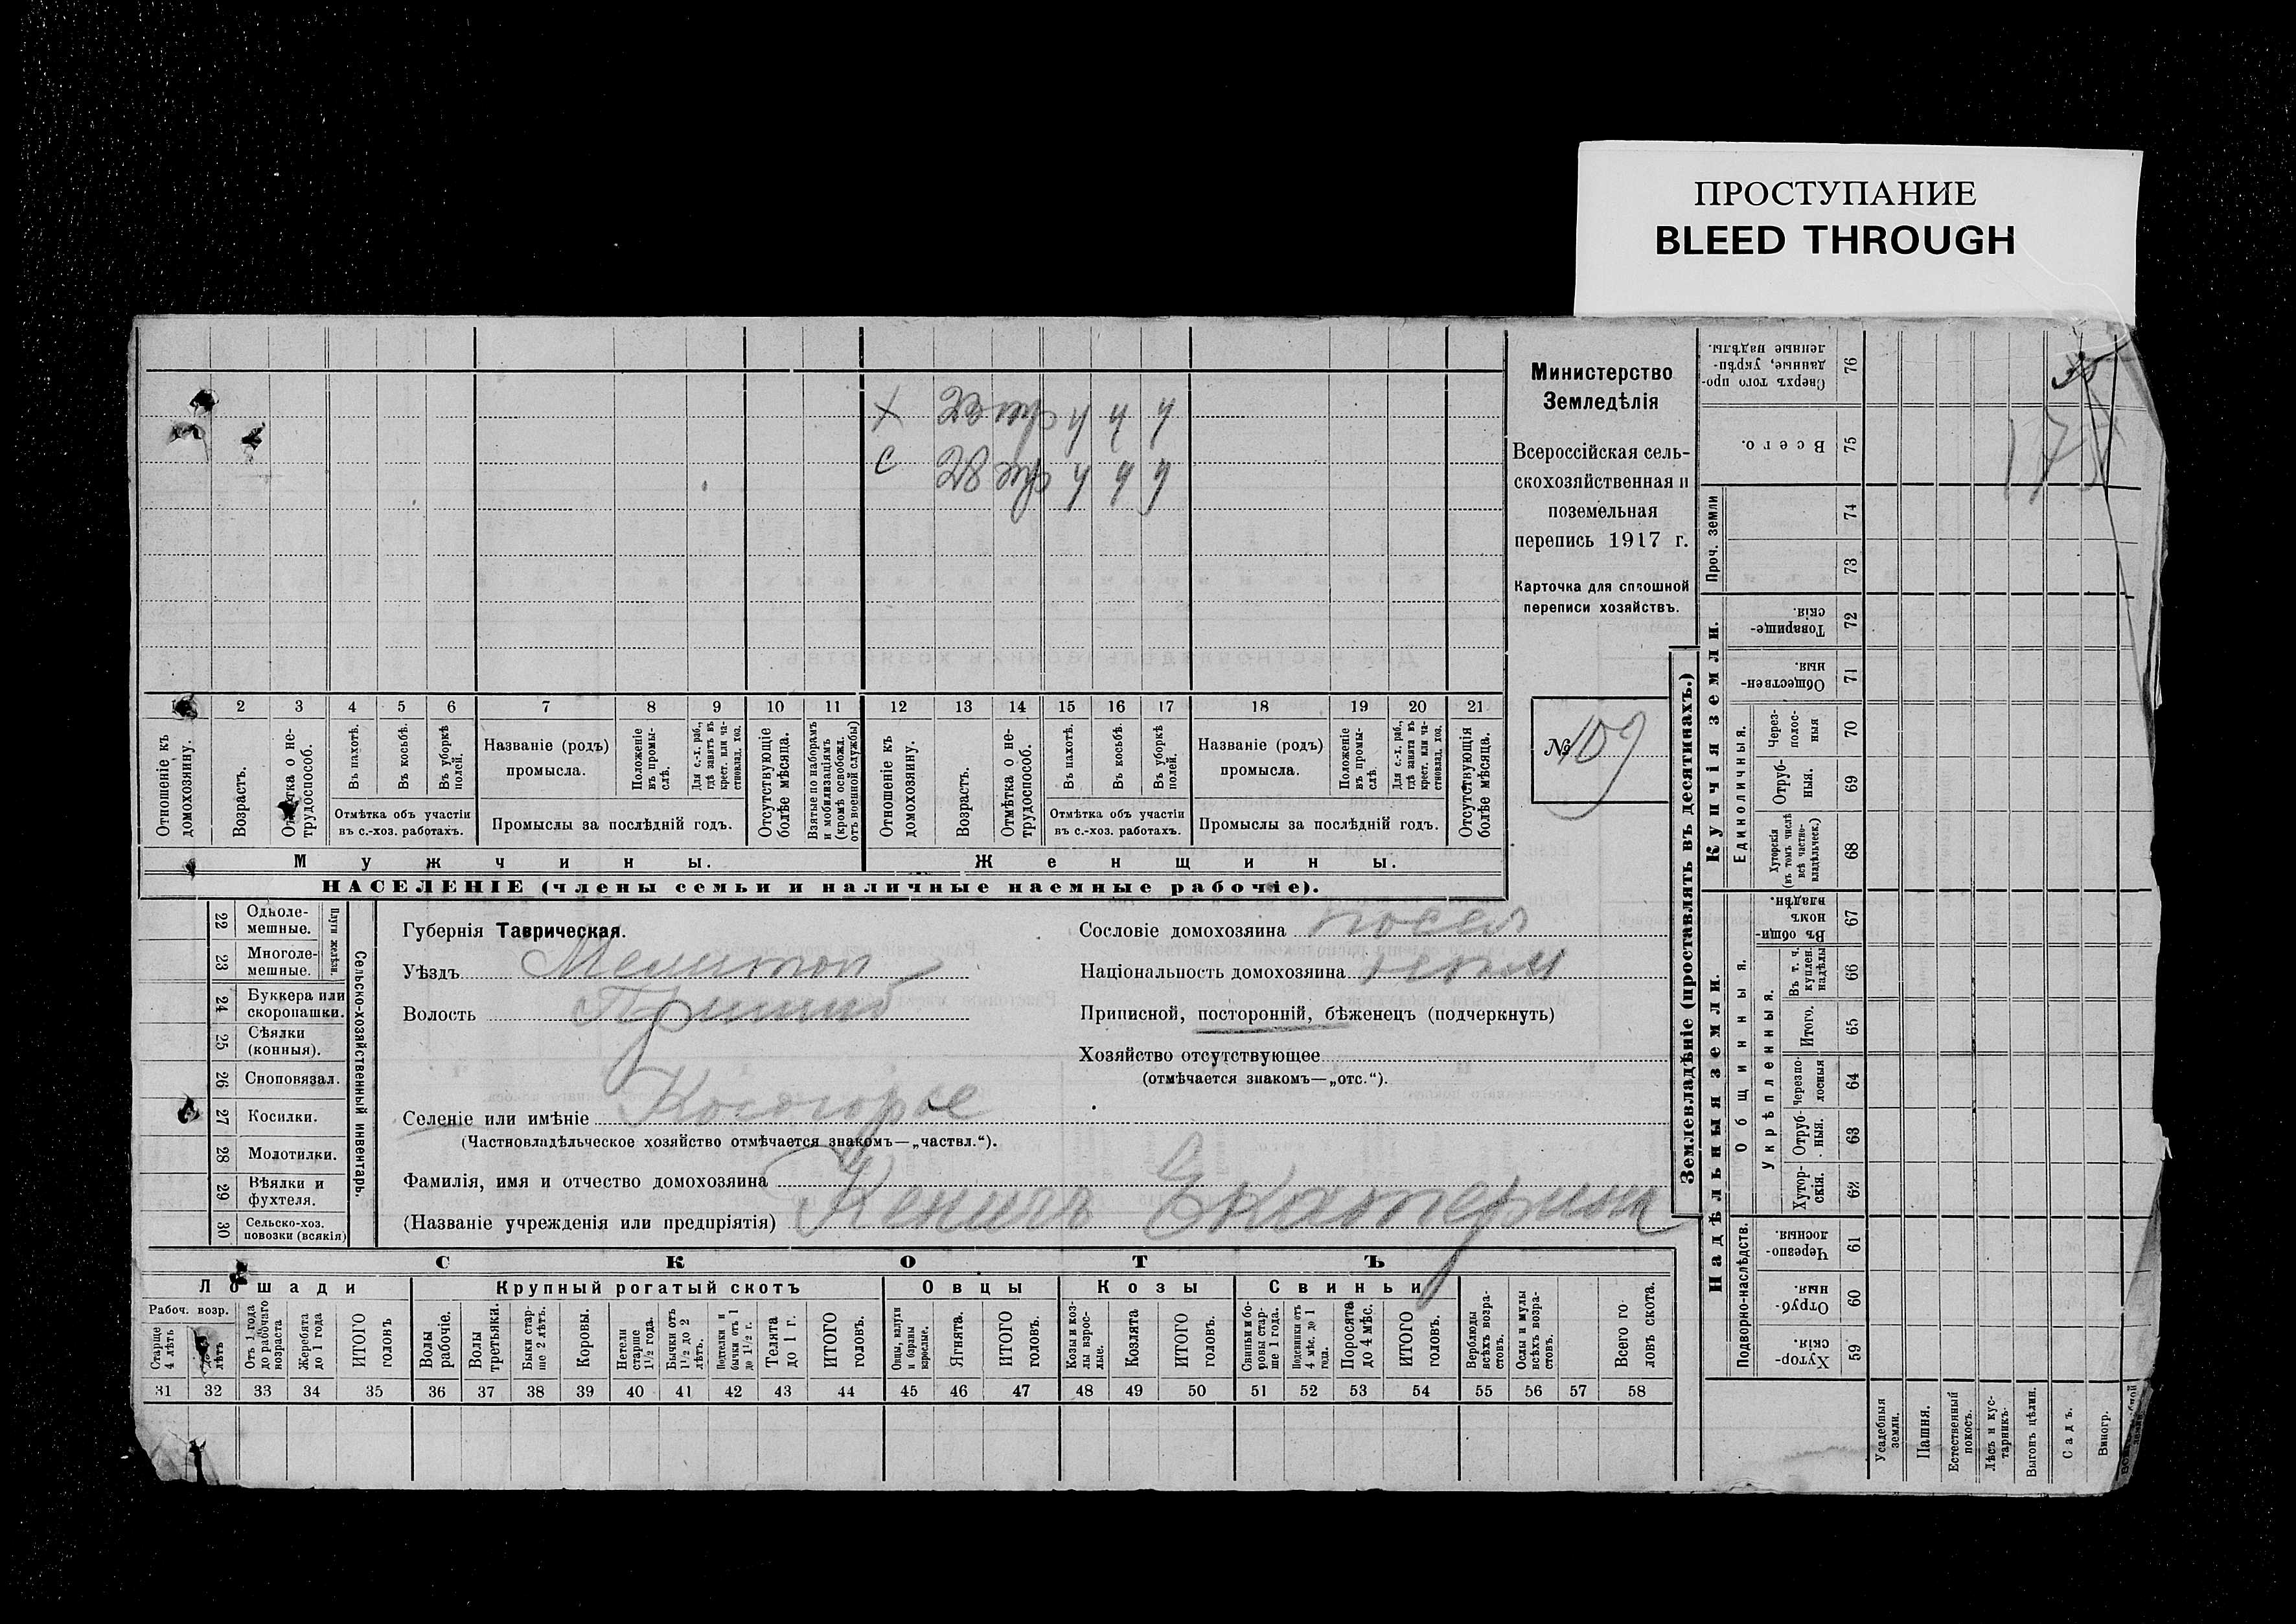 ПРОСТУПАНИЕ
BLEED THROUGH
Х 22 нтр у у у
С 28 нтр у у у
Министерство
Земледѣлія
Всероссійская сель-
скохозяйственная и
поземельная
перепись 1917 г.
Карточка для сплошной
переписи хозяйствъ.
№ 109
1 2 3 4 5 6 7 8 9 10 11 12 13 14 15 16 17 18 19 20 21
Отношеніе къ домохозяину.
Возрастъ.
Отмѣтка о не-трудоспособ.
Въ пахотѣ.
Въ косьбѣ.
Въ уборкѣ полей.
Отмѣтка объ участіи
въ с.-хоз. работахъ.
Названіе (родъ)
промысла.
Положеніе въ промы-слѣ.
Для с.-х. раб., гдѣ занятъ въ крест. или ча-стновлад. хоз.
Промыслы за послѣдній годъ.
Отсутствующіе болѣе мѣсяца.
Взятые по наборамъ и мобилизаціямъ (кромѣ освобожд. отъ военной службы)
Отношеніе къ домохозяину.
Возрастъ.
Отмѣтка о не-трудоспособ.
Въ пахотѣ.
Въ косьбѣ.
Въ уборкѣ полей.
Отмѣтка объ участіи
въ с.-хоз. работахъ.
Названіе (родъ)
промысла.
Положеніе въ промы-слѣ.
Для с.-х. раб., гдѣ занята въ крест. или ча-стновлад. хоз.
Промыслы за послѣдній годъ.
Отсутствующія болѣе мѣсяца.
Мужчины.
Женщины.
НАСЕЛЕНІЕ (члены семьи и наличные наемные рабочіе).
22 Одноле-мешные.
23 Многоле-мешные.
Плуги желѣзн.
24 Буккера или скоропашки.
25 Сѣялки (конныя).
26 Сноповязал.
27 Косилки.
28 Молотилки.
29 Вѣялки и фухтеля.
30 Сельско-хоз. повозки (всякія)
Сельско-хозяйственный инвентарь.
Губернія Таврическая.
Уѣздъ Мелитоп
Волость Пришиб
Селеніе или имѣніе Косогорое
(Частновладѣльческое хозяйство отмѣчается знакомъ—„частвл.“).
Фамилія, имя и отчество домохозяина
(Названіе учрежденія или предпріятія) Кеничъ Екатерина
Сословіе домохозяина посел
Національность домохозяина нѣм
Приписной, посторонній, бѣженецъ (подчеркнуть)
Хозяйство отсутствующее
(отмѣчается знакомъ—„отс.“).
СКОТЪ
Лошади
Крупный рогатый скотъ
Овцы
Козы
Свиньи
Рабоч. возр.
Старше 4 лѣтъ
лѣтъ
Отъ 1 года до рабочаго возраста
Жеребята до 1 года
ИТОГО головъ
Волы рабочіе.
Волы третьяки.
Быки стар-ше 2 лѣтъ.
Коровы.
Нетели старше 1½ года.
Бычки отъ 1½ до 2 лѣтъ.
Подтелки и бычки отъ 1 до 1½ г.
Телята до 1 г.
ИТОГО головъ.
Овцы, валухи и бараны взрослые.
Ягнята.
ИТОГО головъ.
Козы и коз-лы взрос-лые.
Козлята
ИТОГО головъ.
Свиньи и бо-ровы стар-ше 1 года.
Подсвинки отъ 4 мѣс. до 1 года.
Поросята до 4 мѣс.
ИТОГО головъ.
Верблюды всѣхъ возра-стовъ.
Ослы и мулы всѣхъ возра-стовъ.
Всего го ловъ скота.
31 32 33 34 35 36 37 38 39 40 41 42 43 44 45 46 47 48 49 50 51 52 53 54 55 56 57 58
Землевладѣніе (проставлять въ десятинахъ.)
Купчія земли.
Надѣльныя земли.
Сверхъ того про-данные, укрѣп-ленные надѣлы. 76
Всего. 75
Проч. земли
74
73
Товарище-скія. 72
Обществен-ныя. 71
Единоличныя.
Через-полос-ныя 70
Отруб-ныя. 69
Хуторскія (въ томъ числѣ всѣ частно-владѣльческ.) 68
Общинныя.
Въ общин-номъ владѣн. 67
Укрѣпленныя.
Въ т. ч. куплен. надѣлы 66
Итого. 65
Черезпо-лосныя 64
Отруб-ныя. 63
Хутор-скія. 62
Подворно-наслѣдств.
Черезпо-лосныя. 61
Отруб-ныя. 60
Хутор-скія. 59
Усадебныя земли.
Пашня.
Естественный покосъ.
Лѣсъ и кус-тарникъ.
Выгонъ цѣлин.
Садъ.
Виногр.